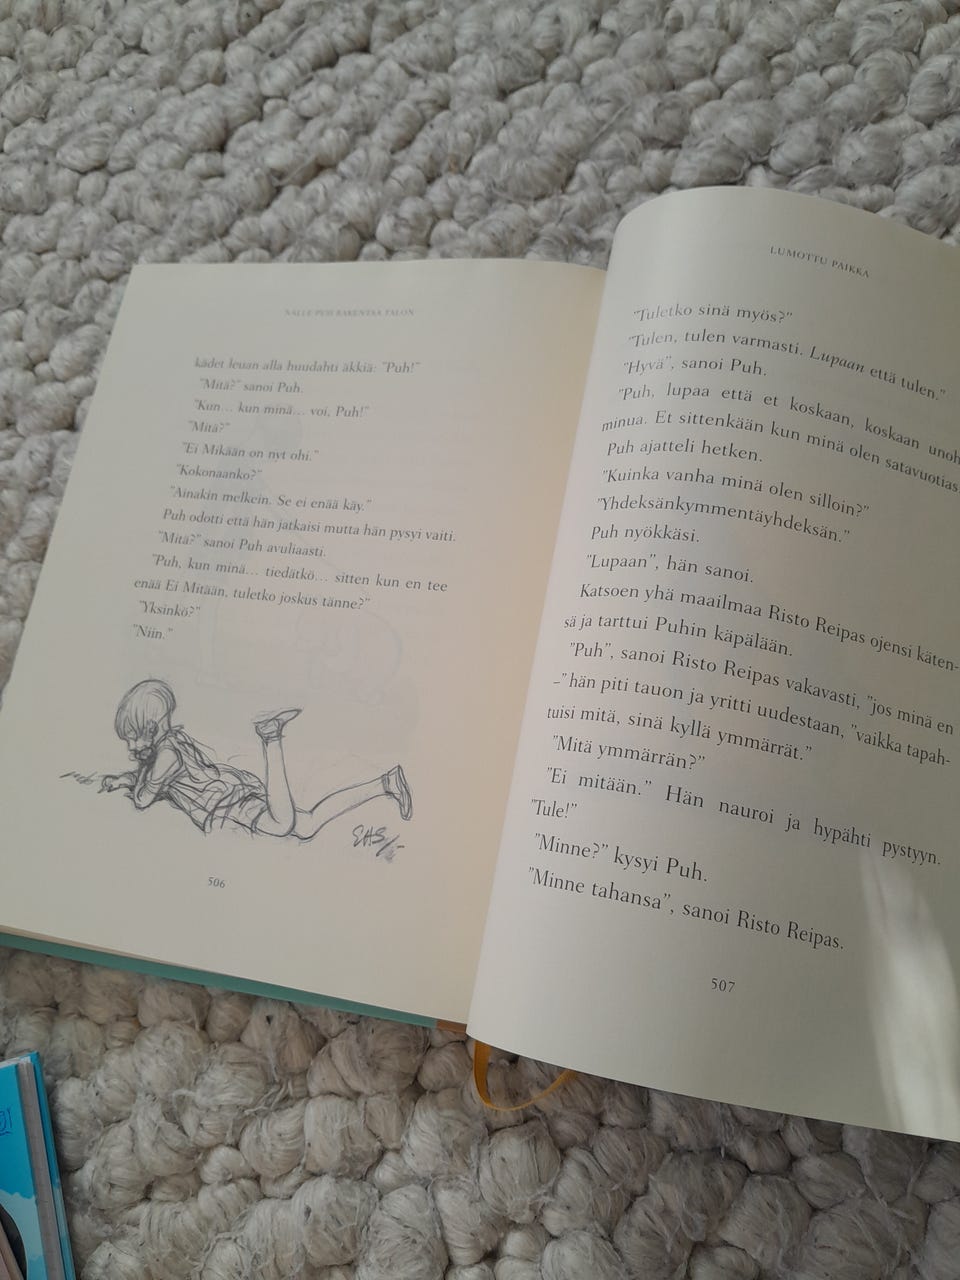 NALLE PUH RAKENTAA TALON
kädet leuan alla huudahti äkkiä: "Puh!"
"Mitä?" sanoi Puh.
"Kun... kun minä... voi, Puh!"
"Mitä?"
"Ei Mikään on nyt ohi."
"Kokonaanko?"
"Ainakin melkein. Se ei enää käy."
Puh odotti että hän jatkaisi mutta hän pysyi vaiti.
"Mitä?" sanoi Puh avuliaasti.
"Puh, kun minä... tiedätkö... sitten kun en tee
enää Ei Mitään, tuletko joskus tänne?"
"Yksinkö?"
"Niin."
EHS
506
LUMOTTU PAIKKA
"Tuletko sinä myös?"
"Tulen, tulen varmasti. Lupaan että tulen."
"Hyvä", sanoi Puh.
"Puh, lupaa että et koskaan, koskaan unoh
minua. Et sittenkään kun minä olen satavuotias
Puh ajatteli hetken.
"Kuinka vanha minä olen silloin?"
"Yhdeksänkymmentäyhdeksän."
Puh nyökkäsi.
"Lupaan", hän sanoi.
Katsoen yhä maailmaa Risto Reipas ojensi käten-
sä ja tarttui Puhin käpälään.
"Puh", sanoi Risto Reipas vakavasti, "jos minä en
–" hän piti tauon ja yritti uudestaan, "vaikka tapah-
tuisi mitä, sinä kyllä ymmärrät."
"Mitä ymmärrän?"
"Ei mitään." Hän nauroi ja hypähti pystyyn.
"Tule!"
"Minne?" kysyi Puh.
"Minne tahansa", sanoi Risto Reipas.
507